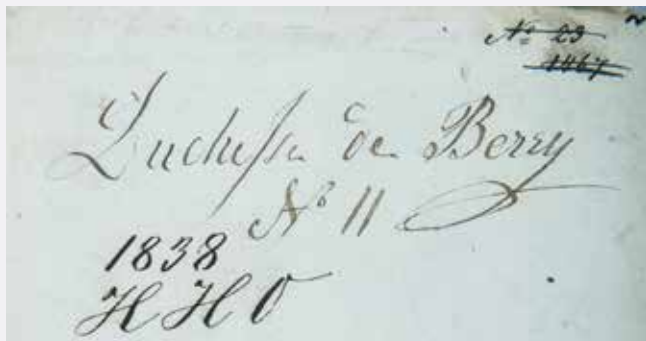 № 23
1467
Duchesse de Berry
№ 11
1838
H H O